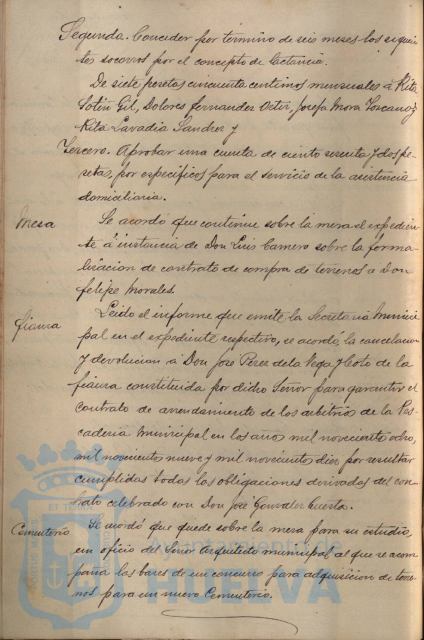 Segunda. Conceder por término de seis meses los siguien-
tes socorros por el concepto de lactancia.
De siete pesetas cincuenta centimos mensuales á Rita
Sotin Gil, Dolores Fernandez Oster, Josefa Mora Toscano y
Rita Lavadia Sandez y
Tercero. Aprobar una cuenta de ciento sesenta y dos pe-
setas, por especificos para el servicio de la asistencia
domiciliaria.
Mesa
Se acordó que continue sobre la mesa el expedien-
te á instancia de Don Luis Camero sobre la forma-
lizacion de contrato de compra de terrenos a Don
Felipe Morales.
fianza
Leido el informe que emite la Secretaria Munici-
pal en el expediente respectivo, se acordó la cancelacion
y devolucion a Don José Perez de la Vega y Coto de la
fianza constituida por dicho Señor para garantir el
contrato de arrendamiento de los arbitrios de la Pes-
caderia Municipal en los año mil novecientos ocho,
mil novecientos nueve y mil novecientos diez por resultar
cumplidas todas las obligaciones derivadas del con-
trato celebrado con Don José Gonzalez Cuesta.
Cementerio
Se acordó que quede sobre la mesa para su estudio,
un oficio del Señor Arquitecto municipal al que se acom-
paña las bases de un concurso para adquisicion de terre-
nos para un nuevo Cementerio.
Ayuntamiento
HUELVA